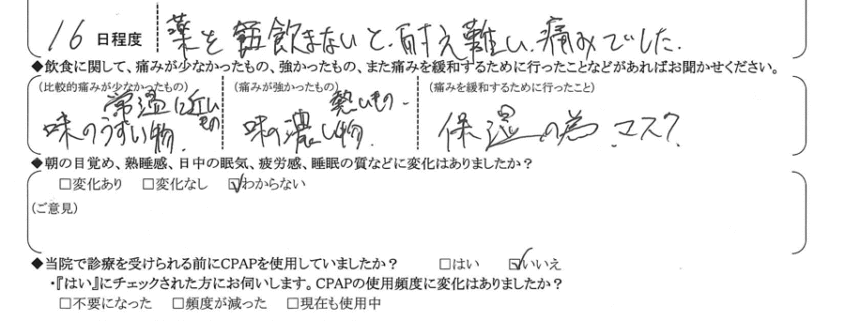 16 日程度 薬を飲まないと耐え難い痛みでした.
◆飲食に関して、痛みが少なかったもの、強かったもの、また痛みを緩和するために行ったことなどがあればお聞かせください。
(比較的痛みが少なかったもの) (痛みが強かったもの) (痛みを緩和するために行ったこと)
常温に近いもの 熱いもの.
味のうすい物. 味の濃い物. 保湿の為マスク
◆朝の目覚め、熟睡感、日中の眠気、疲労感、睡眠の質などに変化はありましたか?
□変化あり □変化なし ☑わからない
(ご意見)
◆当院で診療を受けられる前にCPAPを使用していましたか? □はい ☑いいえ
・『はい』にチェックされた方にお伺いします。CPAPの使用頻度に変化はありましたか?
□不要になった □頻度が減った □現在も使用中